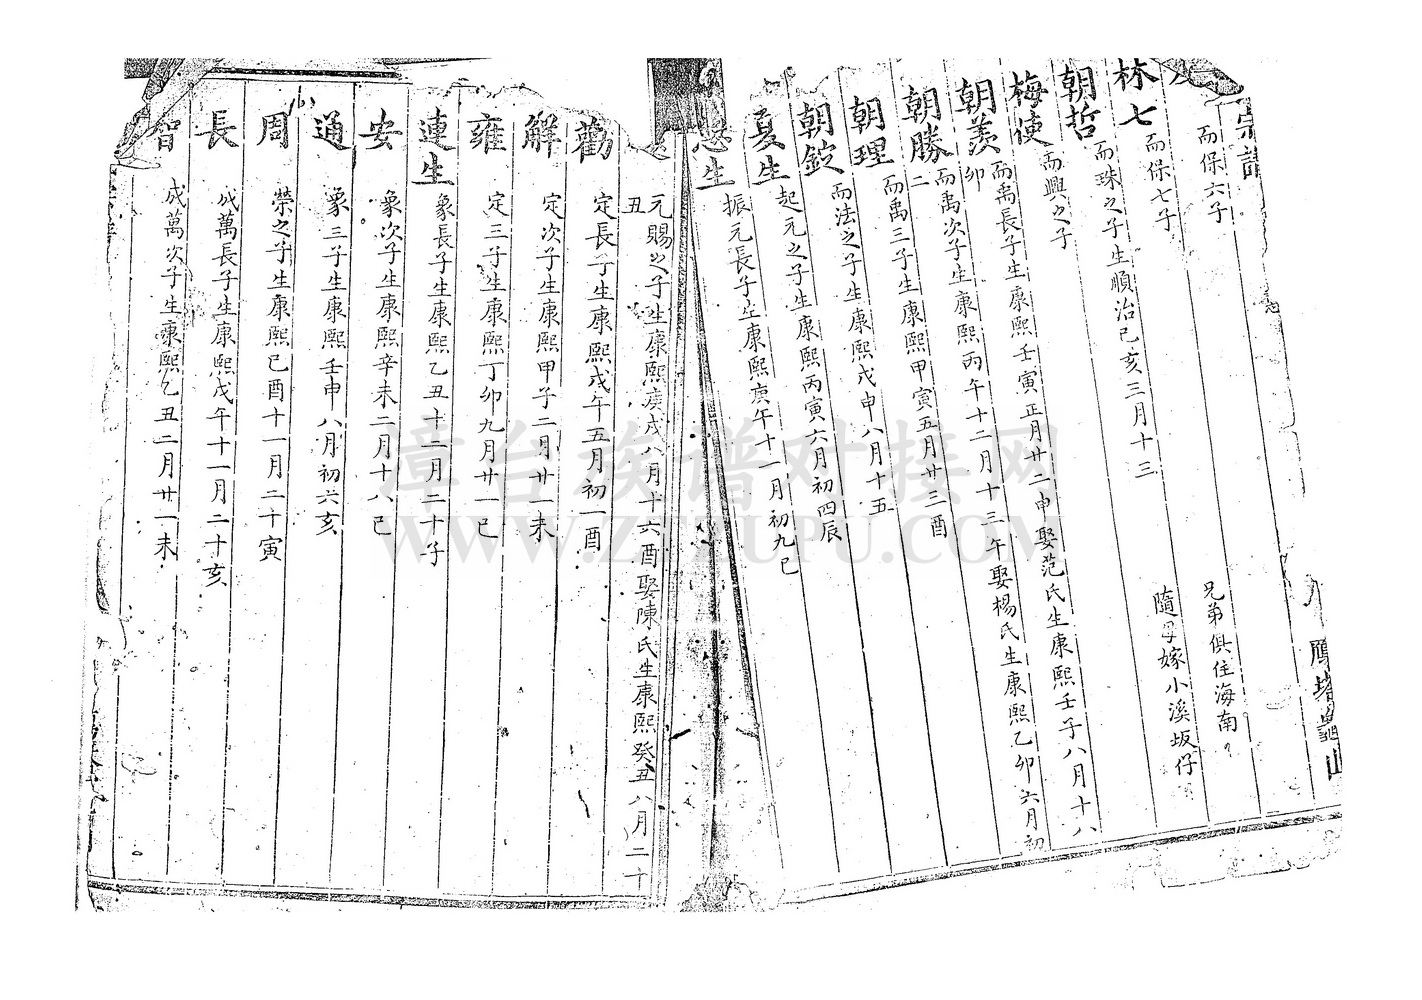 宗譜
鴈塔龜山
而保六子 兄弟俱住海南
林七 而保七子 隨母嫁小溪坂仔
朝哲 而珠之子生順治己亥三月十三
梅使 而興之子
朝羨 而禹長子生康熙壬寅正月廿二申娶范氏生康熙壬子八月十八
卯
而禹次子生康熙丙午十二月十三午娶楊氏生康熙乙卯六月初
二
朝勝 而禹三子生康熙甲寅五月廿三酉
朝理 而法之子生康熙戊申八月十五
朝錠 起元之子生康熙丙寅六月初四辰
夏生 振元長子生康熙庚午十一月初九巳
生
元賜之子生康熙庚戌八月十六酉娶陳氏生康熙癸丑八月二十
丑
勸 定長子生康熙戊午五月初一酉
解 定次子生康熙甲子二月廿一未
雍 定三子生康熙丁卯九月廿一巳
連生 象長子生康熙乙丑十二月二十子
安 象次子生康熙辛未二月十八巳
通 象三子生康熙壬申八月初六亥
周 榮之子生康熙己酉十一月二十寅
長 成萬長子生康熙戊午十一月二十亥
智 成萬次子生康熙乙丑二月廿一未
漳台族谱对接网
WWW.ZTZUPU.COM